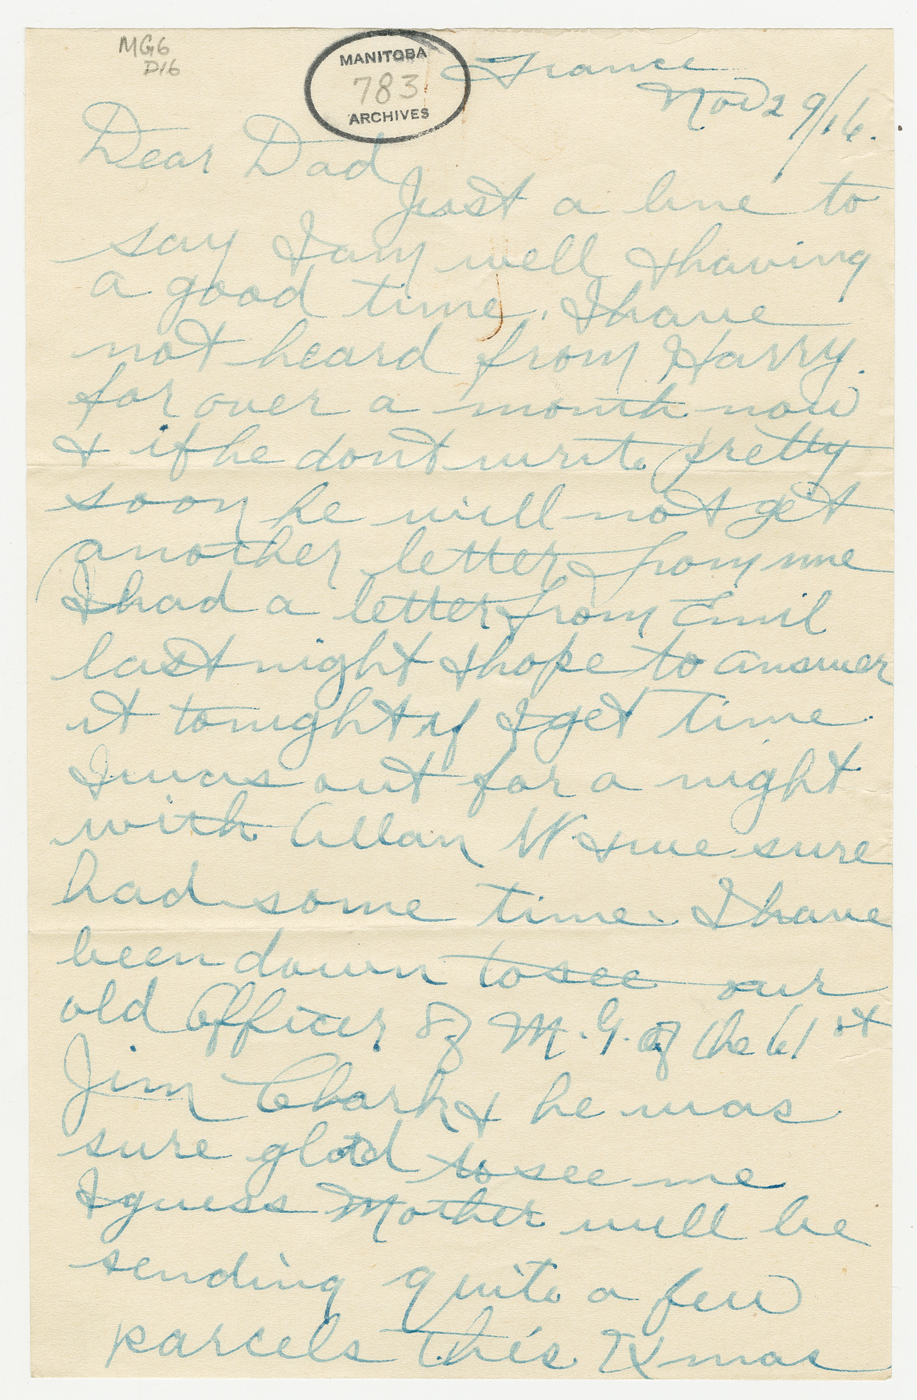 MG6
D16
MANITOBA
783
ARCHIVES
France
Nov 29/16.
Dear Dad
Just a line to
say I am well & having
a good time. I have
not heard from Harry
for over a month now
& if he dont write pretty
soon he will not get
another letter from me
I had a letter from Emil
last night & hope to answer
it tonight if I get time.
I was out for a night
with Allan W & we sure
had some time. I have
been down to see our
old Officer of M.G. of the 61st
Jim Clark & he was
sure glad to see me
I guess Mother will be
sending quite a few
parcels this Xmas